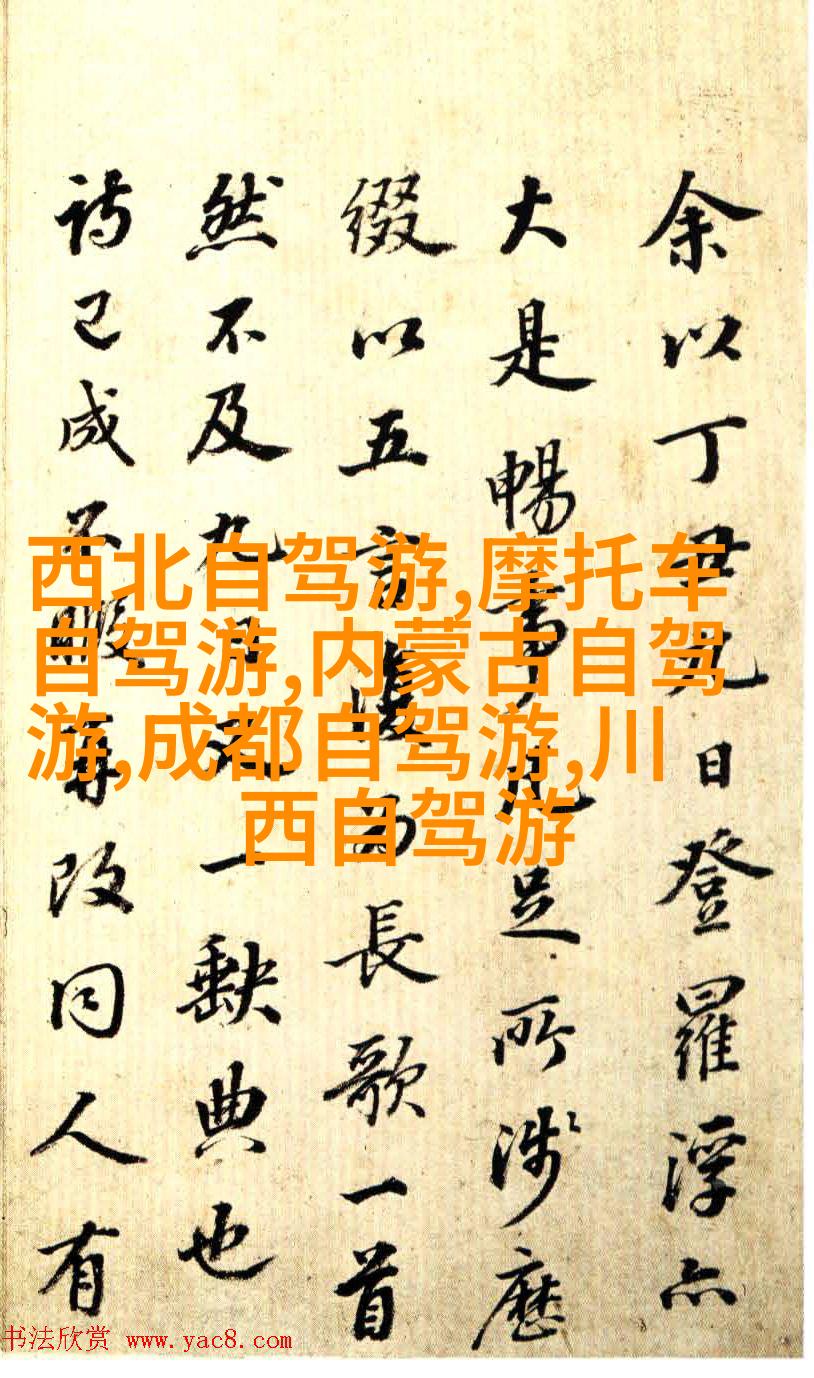 余以丁丑九日登羅浮亦
大是暢事凡足所涉歷
綴以五言復為長歌一首
然不及九日一缺典也
詩已成不暇再改同人有
西北自驾游,摩托车
自驾游,内蒙古自驾
游,成都自驾游,川
西自驾游
书法欣赏 www.yac8.com